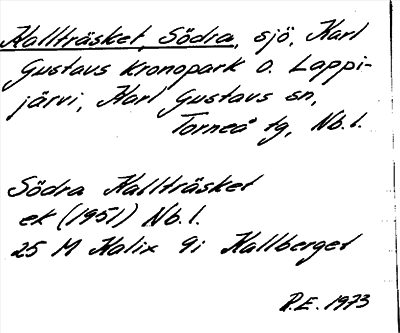 Hallträsket, Södra, sjö, Karl
Gustavs kronopark o. Lappi-
järvi, Karl Gustavs sn,
Torneå tg, Nb. l.
Södra Hallträsket
ek (1951) Nb. l.
25 M Kalix 9i Hallberget
P.E. 1973